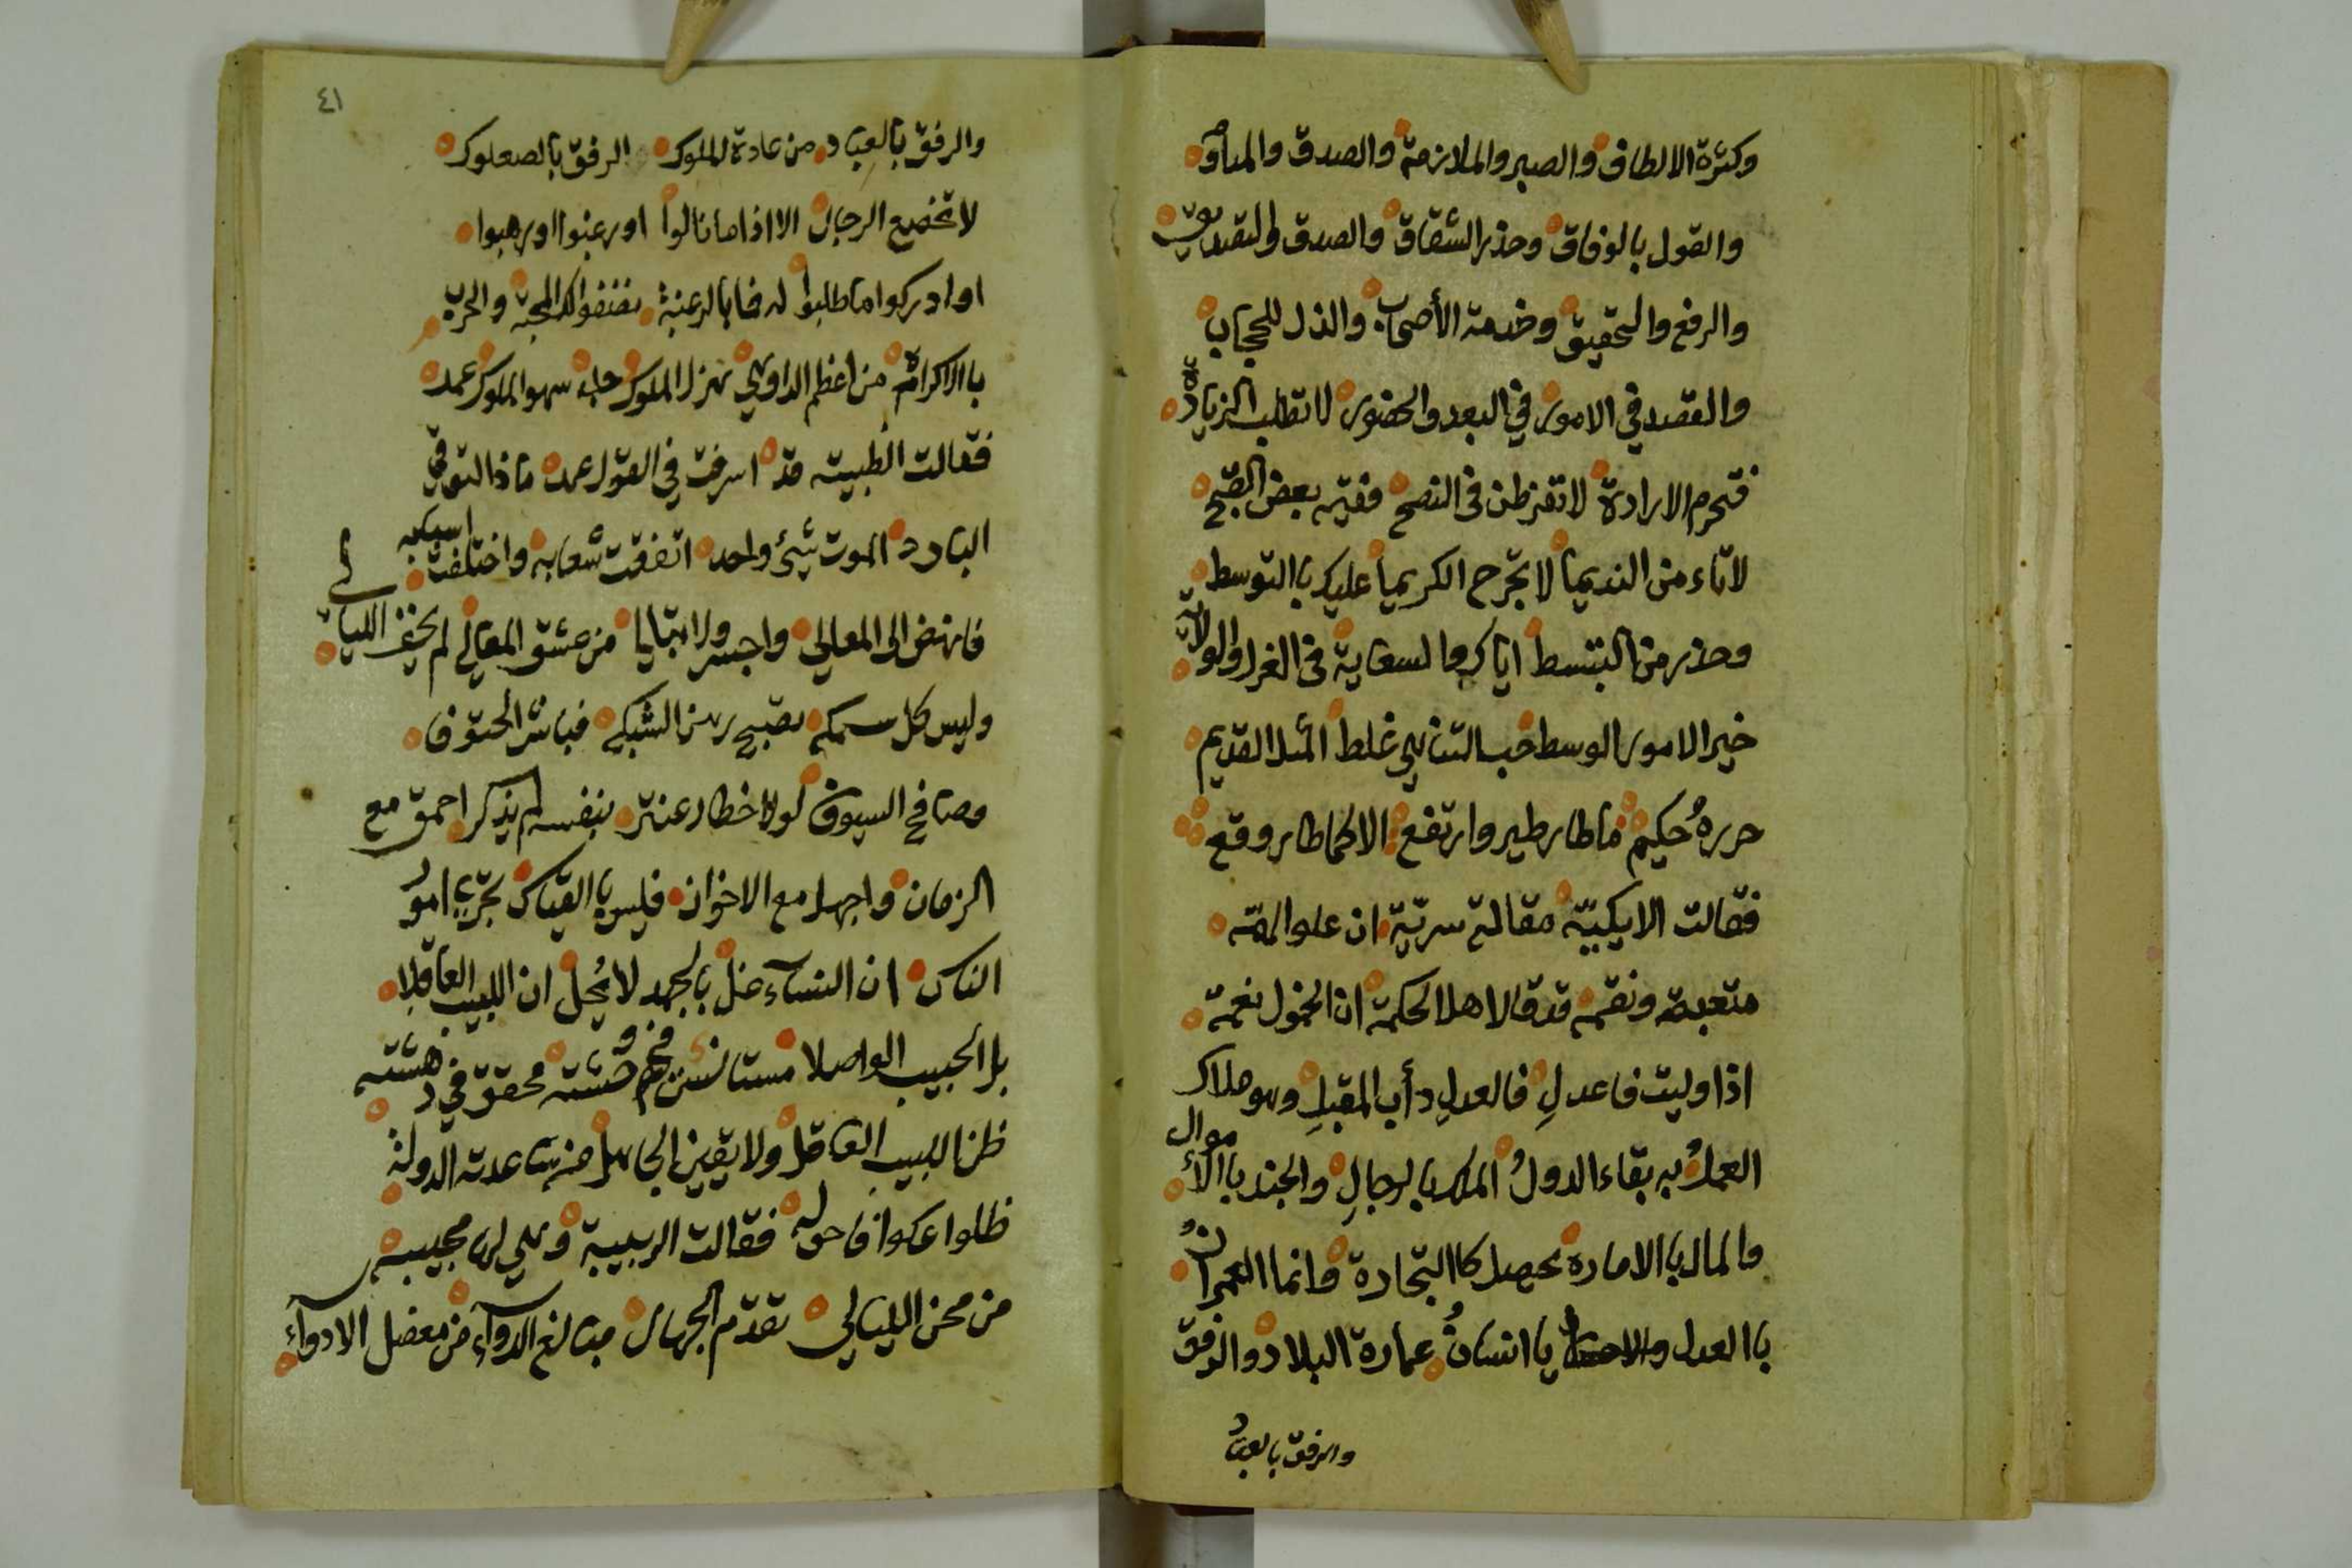 وكثرة الالطاف والصبر والملازمة والصدق والمناة
والقول بالوفاق وحذر الشقاق والصدق والتصديق
والرفع والتحقيق وخدمة الأصحاب والذل للحجاب
والقصد في الامور في البعد والحضور لا تطلب الزيادة
فتحرم الارادة لا تفرطن في النصح ففيه بعض القبح
لا تاء من النديما لا تجرح الكريما عليك باالتوسط
وحذر من التبسط اياك والسعاية في الغرل والولاية
خير الامور الوسط حب التناهي غلط المثل القديم
حرره حكيم ما طار طير وارتفع الا كما طار وقع
فقالت الايكيّه مقالة سريّة ان علو الهمّه
متعبة ونقمه قد قال اهل الحكمة ان الخمول نعمة
اذا وليت فاعدلِ فالعدل دأب المقبلِ وهو ملاك
العملُ به بقاء الدولُ الملك بالرجالِ والجند باالأموال
والمال باالاماره تحصل كاالتجارة وانما العمرانُ
باالعدل والاحسان يا انسانُ عمارة البلاد والرفق
والرفق بالعباد
٤١
والرفق بالعباد من عادة الملوك الرفق بالصعلوك
لا تخضع الرجال الا اذا ما نالوا او رغبوا او رهبوا
او ادركوا ما طلبوا له فما بالرغبة المحبة والحرب
باالاكراه من اعظم الدواهي هزل الملوك جلد سهو الملوك عمد
فقالت الطبيبة قد اسرفت في القول عمد ماذا التوقي
البارد الموت شئ واحد اتفقت شعابه واختلفت اسبابه
فانهض الى المعالي واجسر ولا تبالي من عشق المعالي لم يخف الليالي
وليس كل سمكه تصبح رهن الشبكه فباشر الحتوفا
وصافح السيوفا لولا خطار عنتر بنفسه لم يذكر احمق مع
الزمان واجهل مع الاخوان فليس باالقياس تجري امور
الناس ان النساء غلُّ بالجهد لا يُحلّ ان اللبيب العاقلا
بل الحبيب الواصلا مستانس في وحشته محقق في دهشته
ظن اللبيب العاقل ولا يقين الجاهل من ساعدته الدولة
ظلوا عكوفا حوله فقالت الربيبة وهي لها مجيبه
من محن الليالي تقدّم الجهال مبالغ الدواء من معضل الادواء